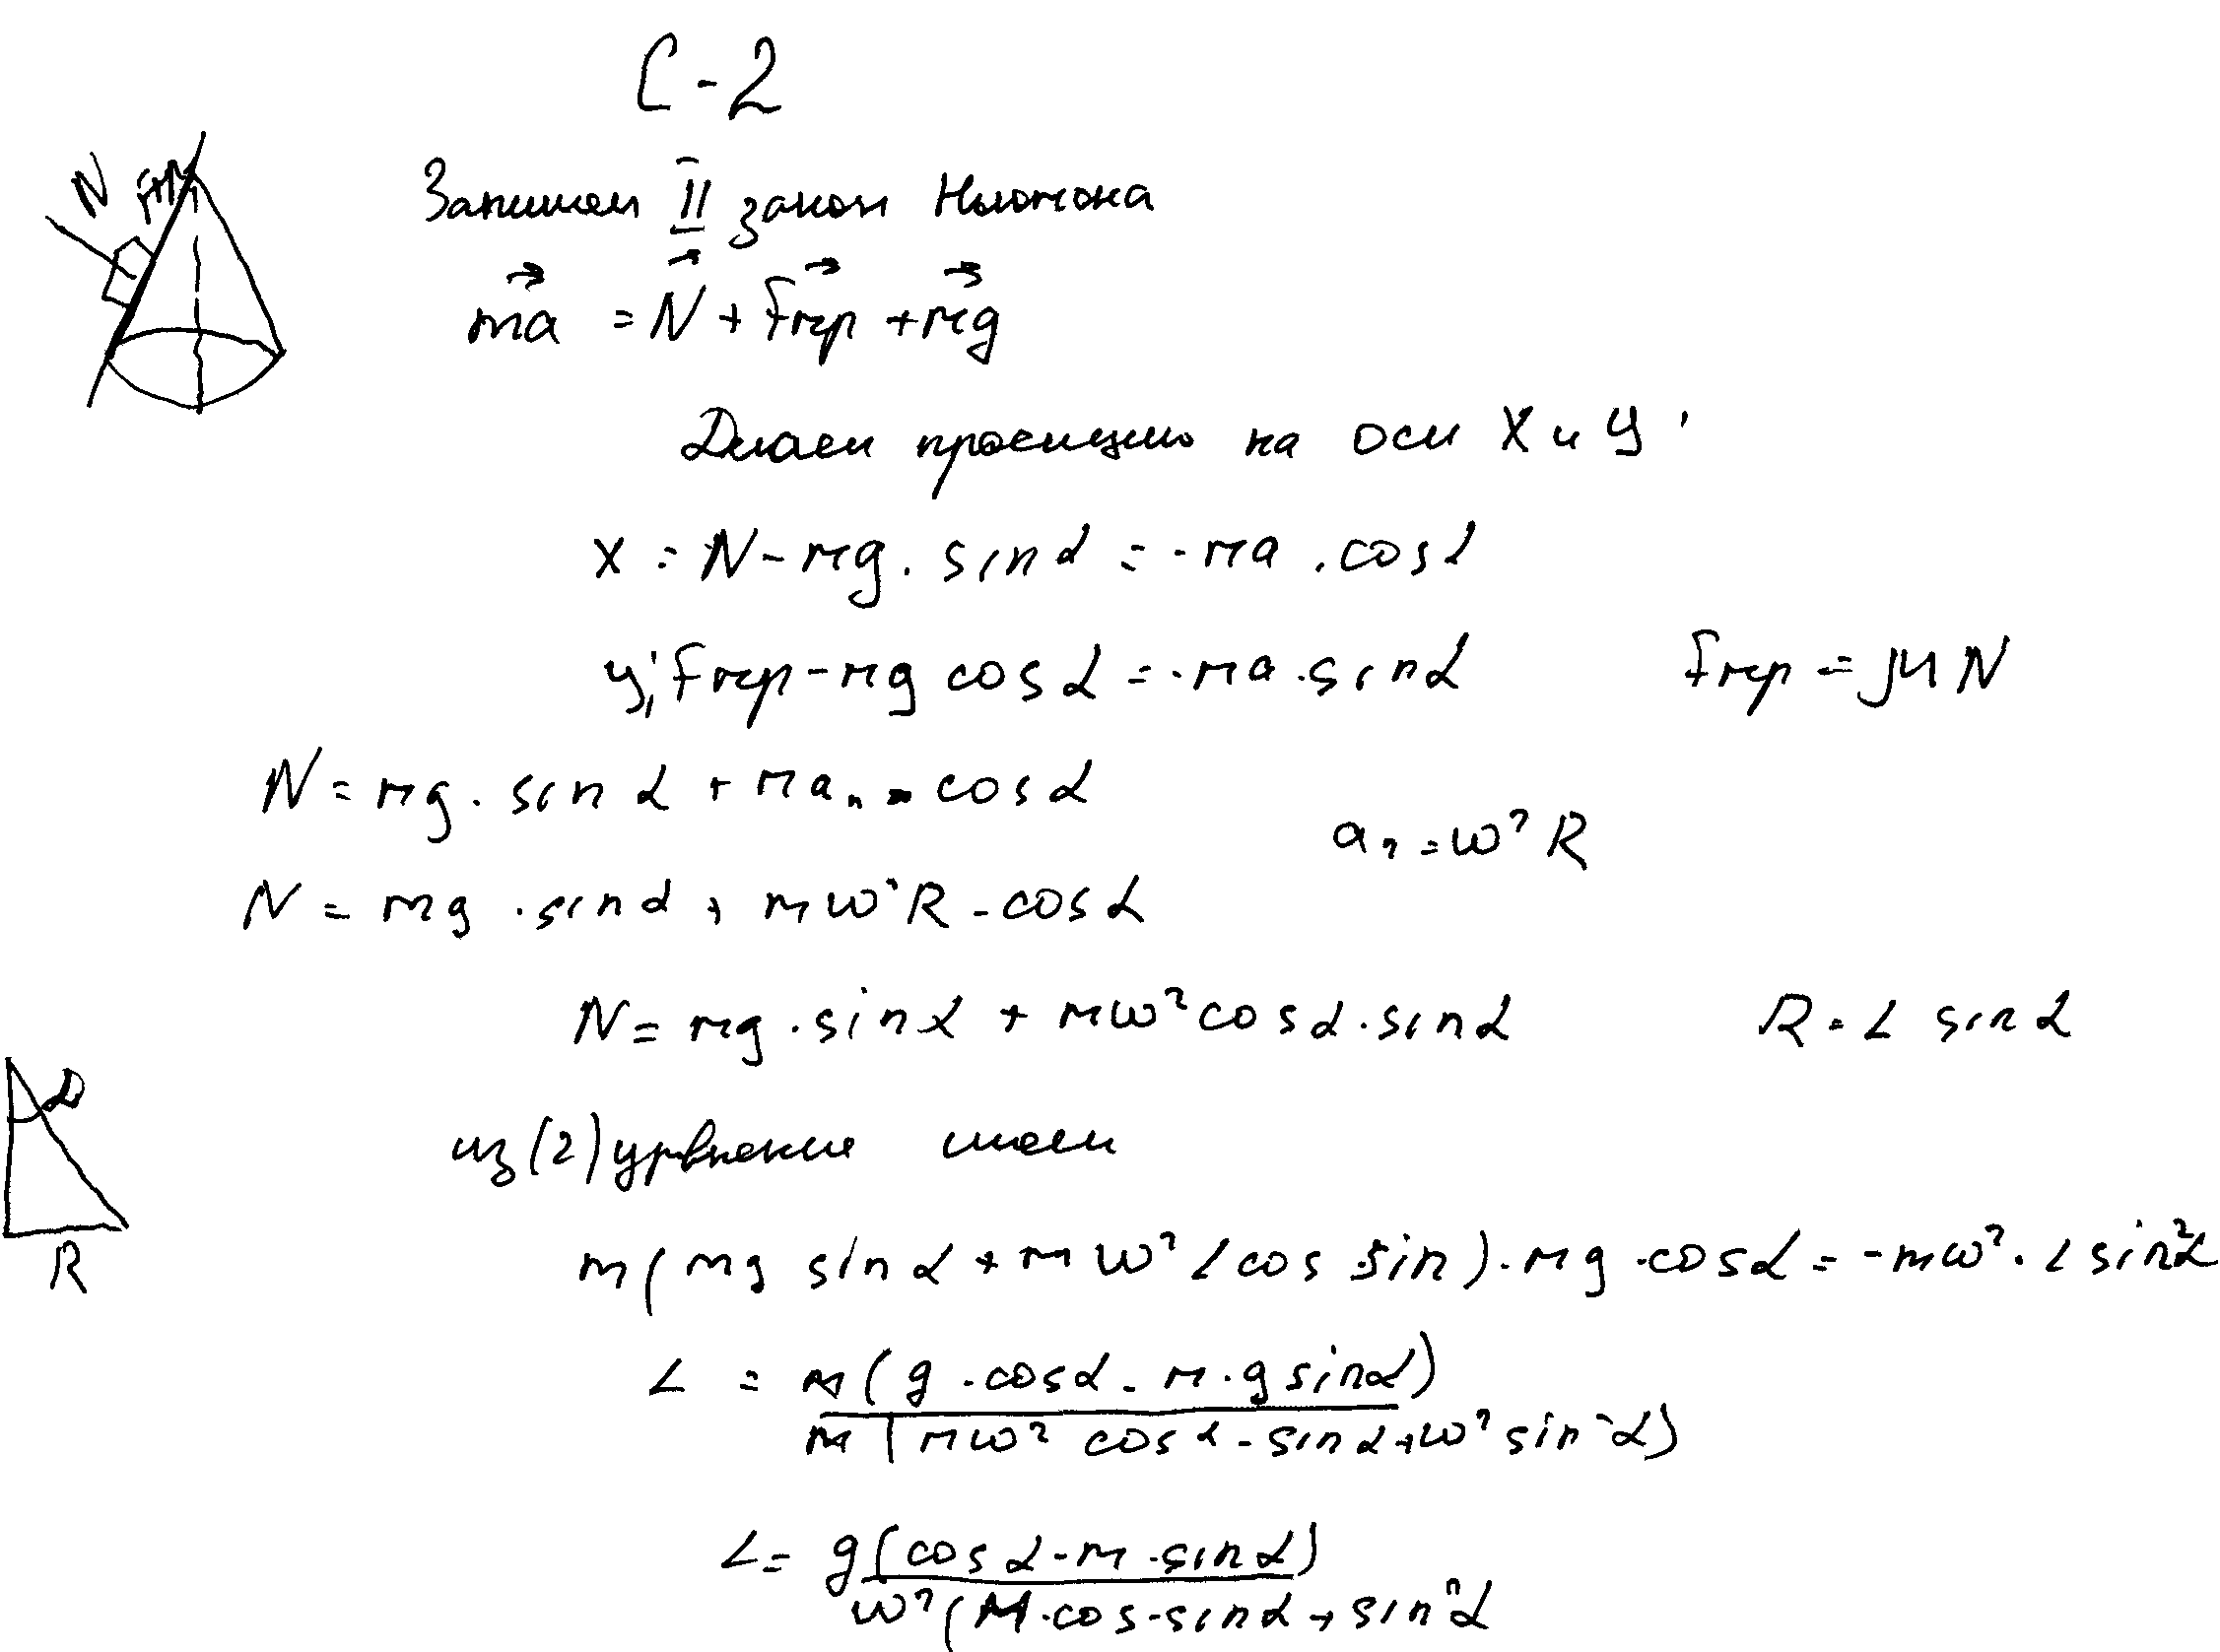 С-2
N Fтр
Запишем II закон Ньютона
ma = N + Fтр + mg
Делаем проекцию на оси X и У
X: N - mg · sin α = -ma · cos α
У: Fтр - mg cos α = -ma · sin α    Fтр = μN
N = mg · sin α + ma_n · cos α
a_n = ω² R
N = mg · sin α + mω²R · cos α
N = mg · sin α + mω² cos α · sin α    R = L sin α
α
из (2) уравнение имеем
R
m(mg sin α + mω² L cos sin) · mg · cos α = -mω² · L sin² α
L = m(g · cos α - м · g sin α)
m(мω² cos α - sin α + ω² sin² α)
L = g(cos α - м · sin α)
ω²(М · cos · sin α + sin² α